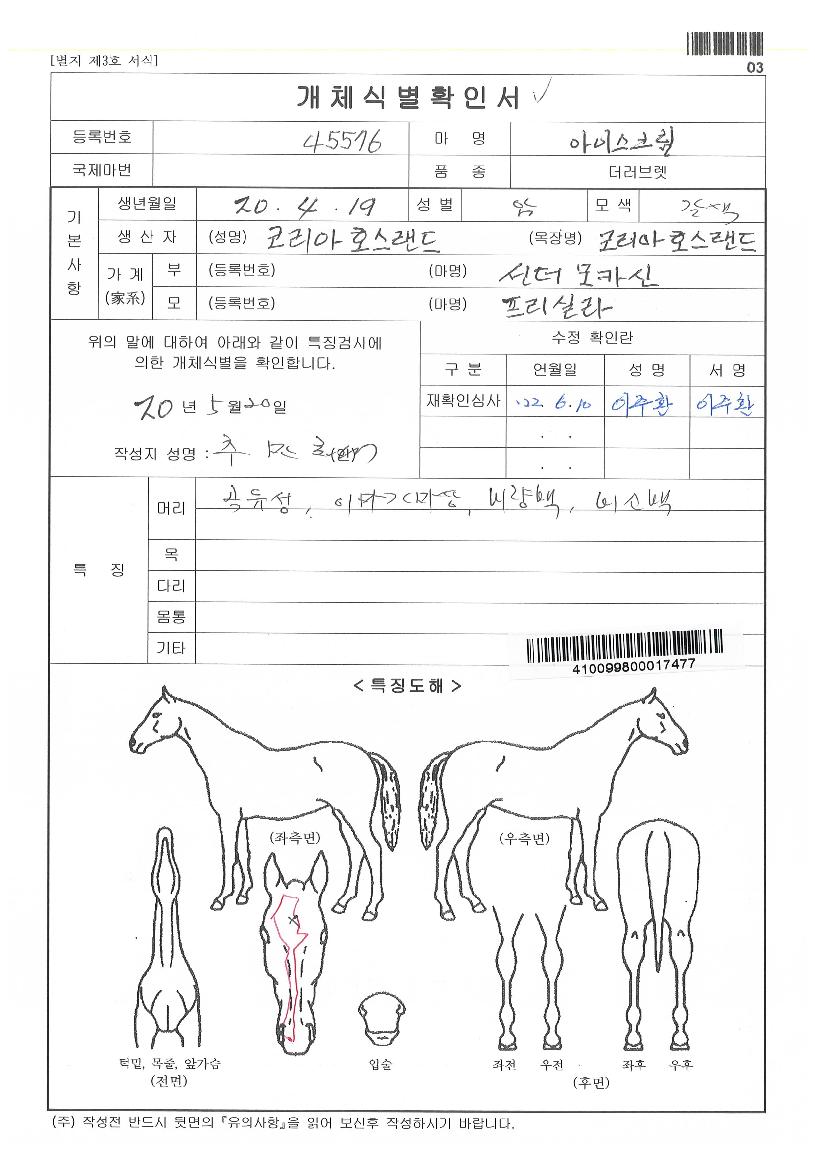 [별지 제3호 서식]
03
개체식별확인서
등록번호 45576 마 명 아이스크림
국제마번 품 종 더러브렛
기본사항
생년월일 20. 4. 19 성별 암 모색 갈색
생산자 (성명) 코리아호스랜드 (목장명) 코리아호스랜드
가계(家系) 부 (등록번호) (마명) 신더모카신
모 (등록번호) (마명) 프리실라
위의 말에 대하여 아래와 같이 특징검시에
의한 개체식별을 확인합니다.
20 년 5 월 20 일
작성지 성명 : 추
수정 확인란
구 분 연월일 성 명 서 명
재확인심사 '22. 6. 10 이주환 이주환
. .
. .
특 징
머리 곡유성, 비량백, 비소백
목
다리
몸통
기타
410099800017477
< 특징도해 >
(좌측면) (우측면)
턱밑, 목줄, 앞가슴 입술 좌전 우전 좌후 우후
(전면) (후면)
(주) 작성전 반드시 뒷면의 『유의사항』을 읽어 보신후 작성하시기 바랍니다.